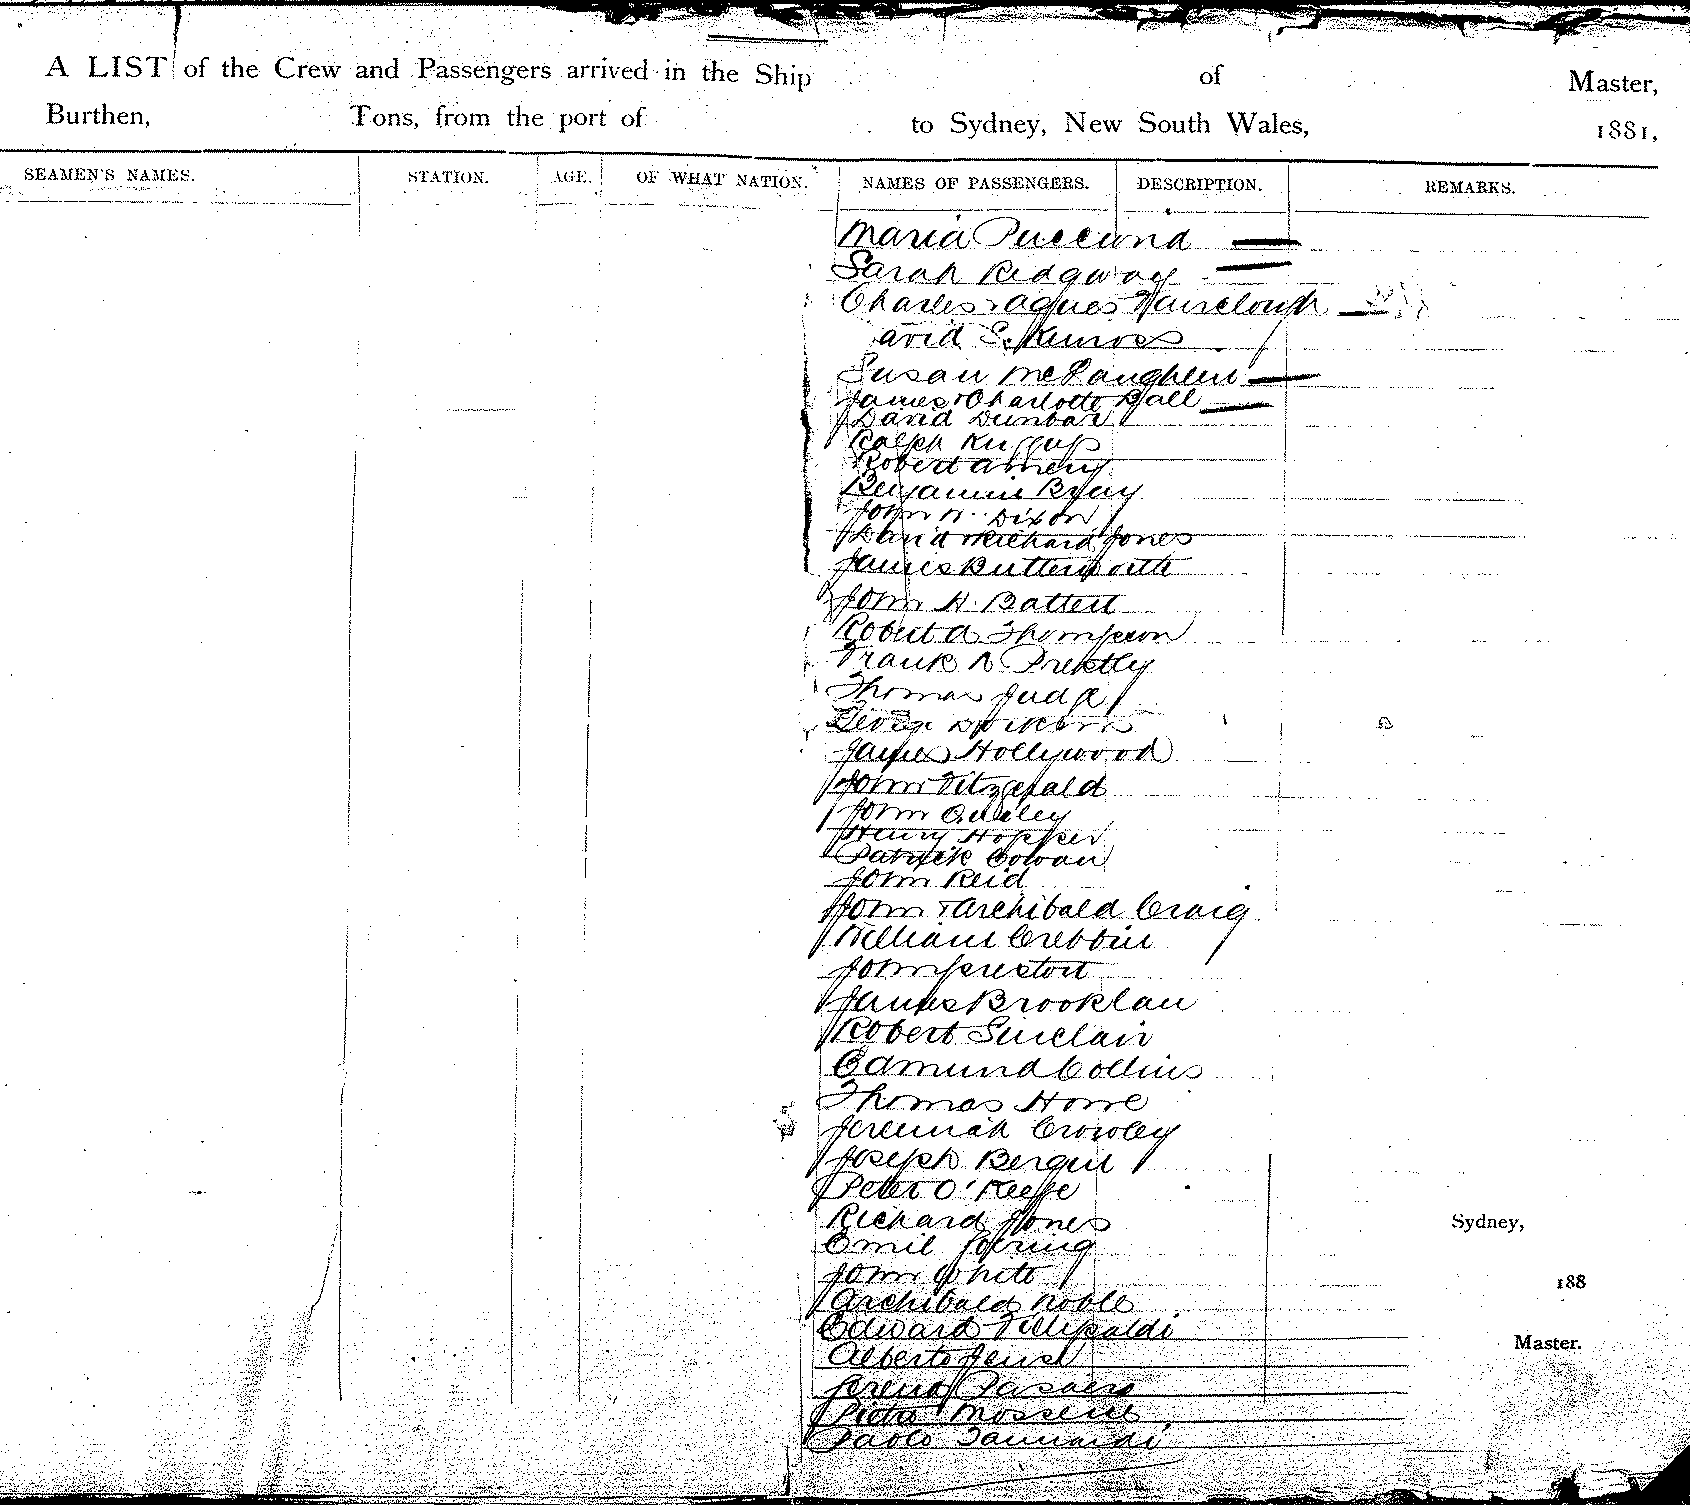 A LIST of the Crew and Passengers arrived in the Ship of Master,
Burthen, Tons, from the port of to Sydney, New South Wales, 1881,
SEAMEN'S NAMES. STATION. AGE. OF WHAT NATION. NAMES OF PASSENGERS. DESCRIPTION. REMARKS.
Maria
Sarah Ridgway
Charles & Agnes Fairclough
David S. Kinross
Susan McLaughlin
James & Charlotte Ball
David Dunbar
Ralph
Robert Amery
Benjamin Bray
John W. Dixon
David & Richard Jones
James Butterworth
John H. Battert
Robert A Thompson
Frank
Thomas Judge
George
James Hollywood
John Fitzgerald
John Quiley
Henry Hopper
Patrick Cowan
John Reid
John & Archibald Craig
William Crebbin
John Preston
James Brooklan
Robert Sinclair
Edmund Collins
Thomas Howe
Jeremiah Crowley
Joseph Bergin
Peter O'Keeffe
Richard Jones
Sydney,
Emil
John White
188
Archibald Noble
Edward
Master.
Alberto
Pietro
Paolo